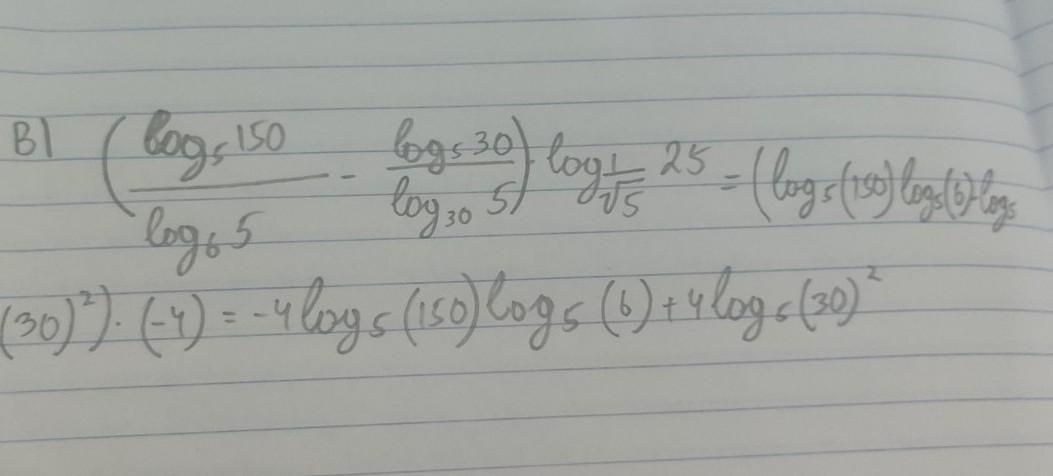 B) (log₅150/log₆5 - log₅30/log₃₀5) log_{1/√5} 25 = (log₅(150)log₅(6)-log₅
(30)²)·(-4) = -4log₅(150)log₅(6)+4log₅(30)²